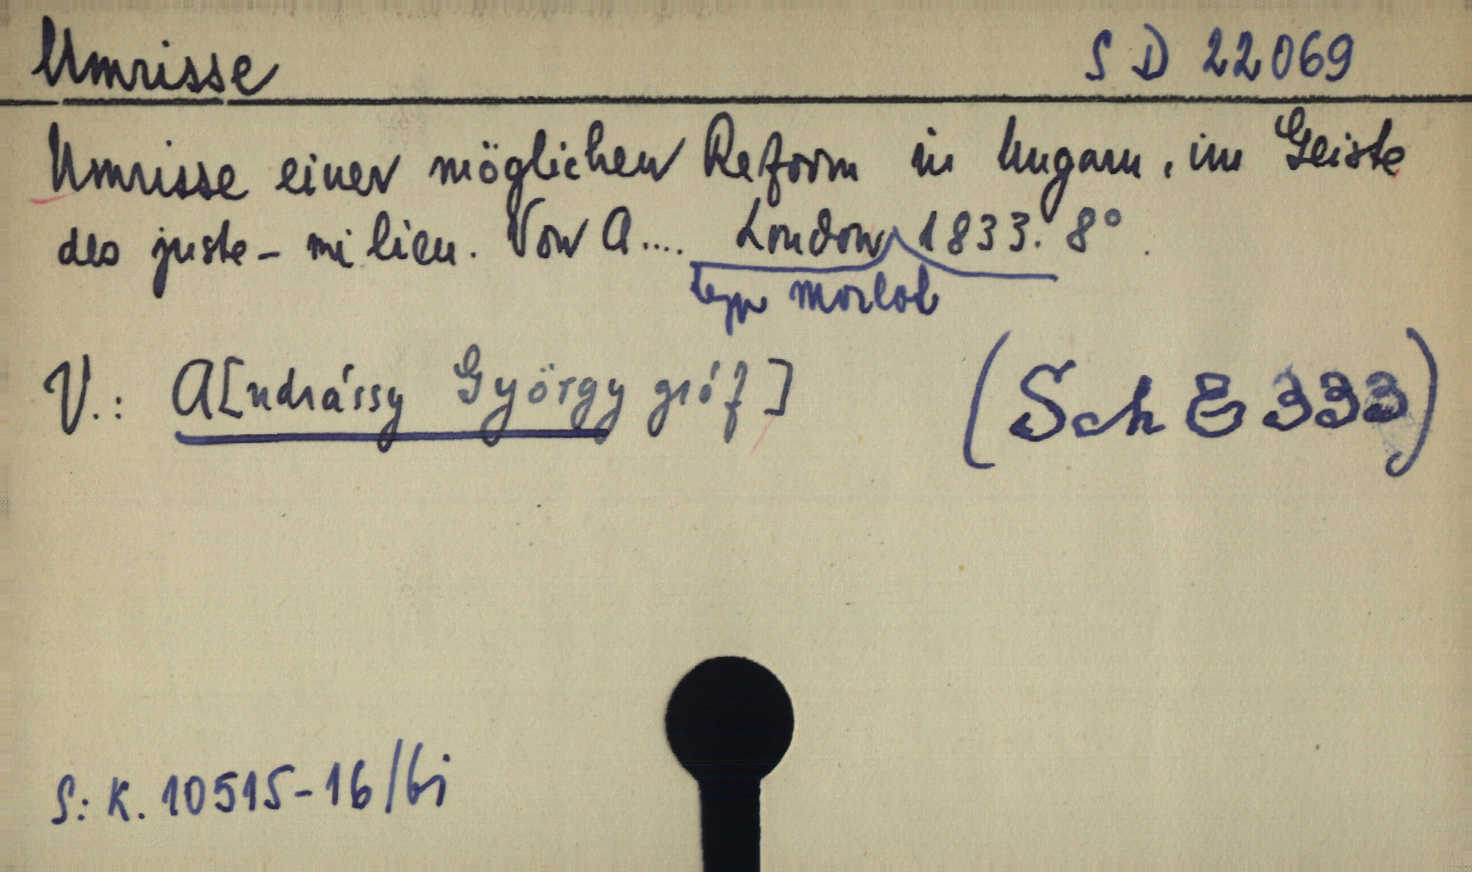 Umrisse
S D 22069
Umrisse einer möglichen Reform in Ungarn, im Geiste
des juste-milieu. Von A.... London, 1833. 8°.
typ Morlok
V.: A[ndrássy György gróf]
(Sch E 333)
S: K. 10515-16/bi